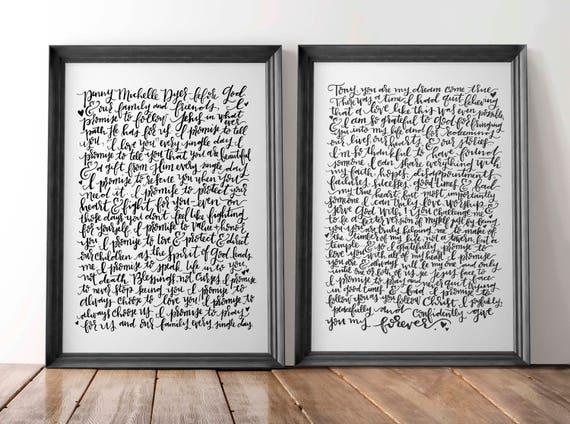 Penny Michelle Dyer before God
& our family and friends, I
promise to follow Jesus on what
path He has for us. I promise to tell
you I love you every single day. I
promise to tell you that you are beautiful
& a gift from Him every single day.
I promise to rescue you when you
need it. I promise to protect your
heart & fight for you - even on
those days you don't feel like fighting
for yourself. I promise to value & honor
you. I promise to love & protect & direct
our children as the Spirit of God leads
me. I promise to speak life into you
not death. Blessings, not curses. I promise
to never stop seeing you. I promise to
always choose to love you. I promise to
always choose us. I promise to pray
for us and our family every single day.
Tony you are my dream come true.
There was a time I had quit believing
that a love like this was even possible
& I am so grateful to God for bringing
you into my life and for redeeming
our lives, our hearts & our stories.
I'm so thankful I have found
someone I can share everything with
my faith, hopes, disappointments,
failures, successes, good times & bad,
my true heart, but most importantly
someone I can truly love, worship, &
serve God with. You challenge me
to be a better version of myself just by being
you. You are truly helping me to make of
the timber of my life not a tavern, but a
temple & I gratefully promise to
love you with all of my heart. I promise
you are & will always be my one and only
until one or both of us see Jesus face to
face. I promise to pray and never quit trying
in good times & bad. I promise to
follow you as you follow Christ. I joyfully,
peacefully and confidently give
you my forever.